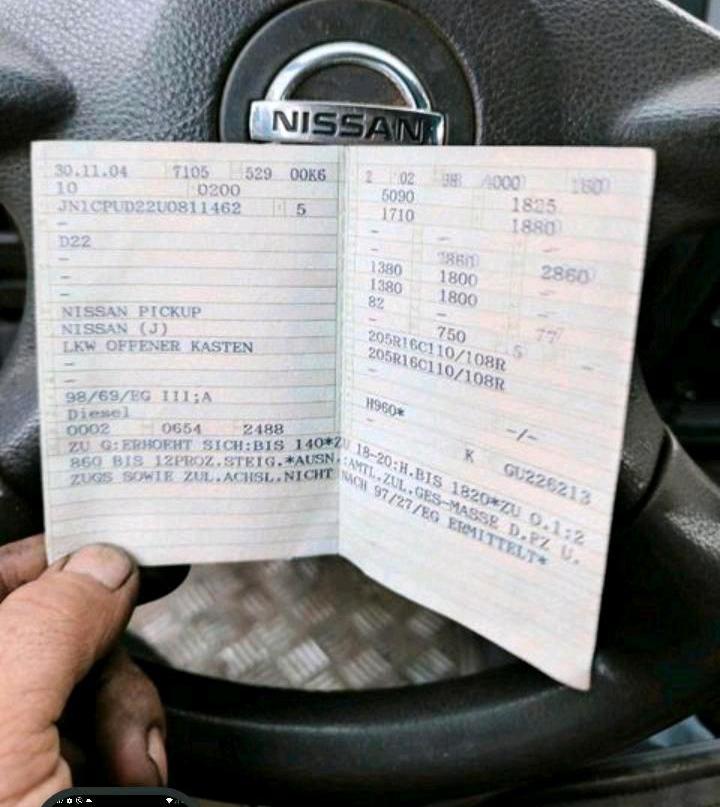 NISSAN
30.11.04 7105 529 00K6
10 0200
JN1CPUD22U0811462 5
-
D22
-
-
-
NISSAN PICKUP
NISSAN (J)
LKW OFFENER KASTEN
-
-
98/69/EG III;A
Diesel
0002 0654 2488
ZU G:ERHOEHT SICH:BIS 140*ZU 18-20:H.BIS 1820*ZU O.1:2
860 BIS 12PROZ.STEIG.*AUSN.:AMTL.ZUL.GES-MASSE D.FZ U.
ZUGS SOWIE ZUL.ACHSL.NICHT NACH 97/27/EG ERMITTELT*
2 02 98 4000
5090 1825
1710 1880
- - -
- 2860 2860
1380 1800 -
1380 1800 -
82
- 750 77
205R16C110/108R 5 -
205R16C110/108R
-
H960* -/-
- K GU226213